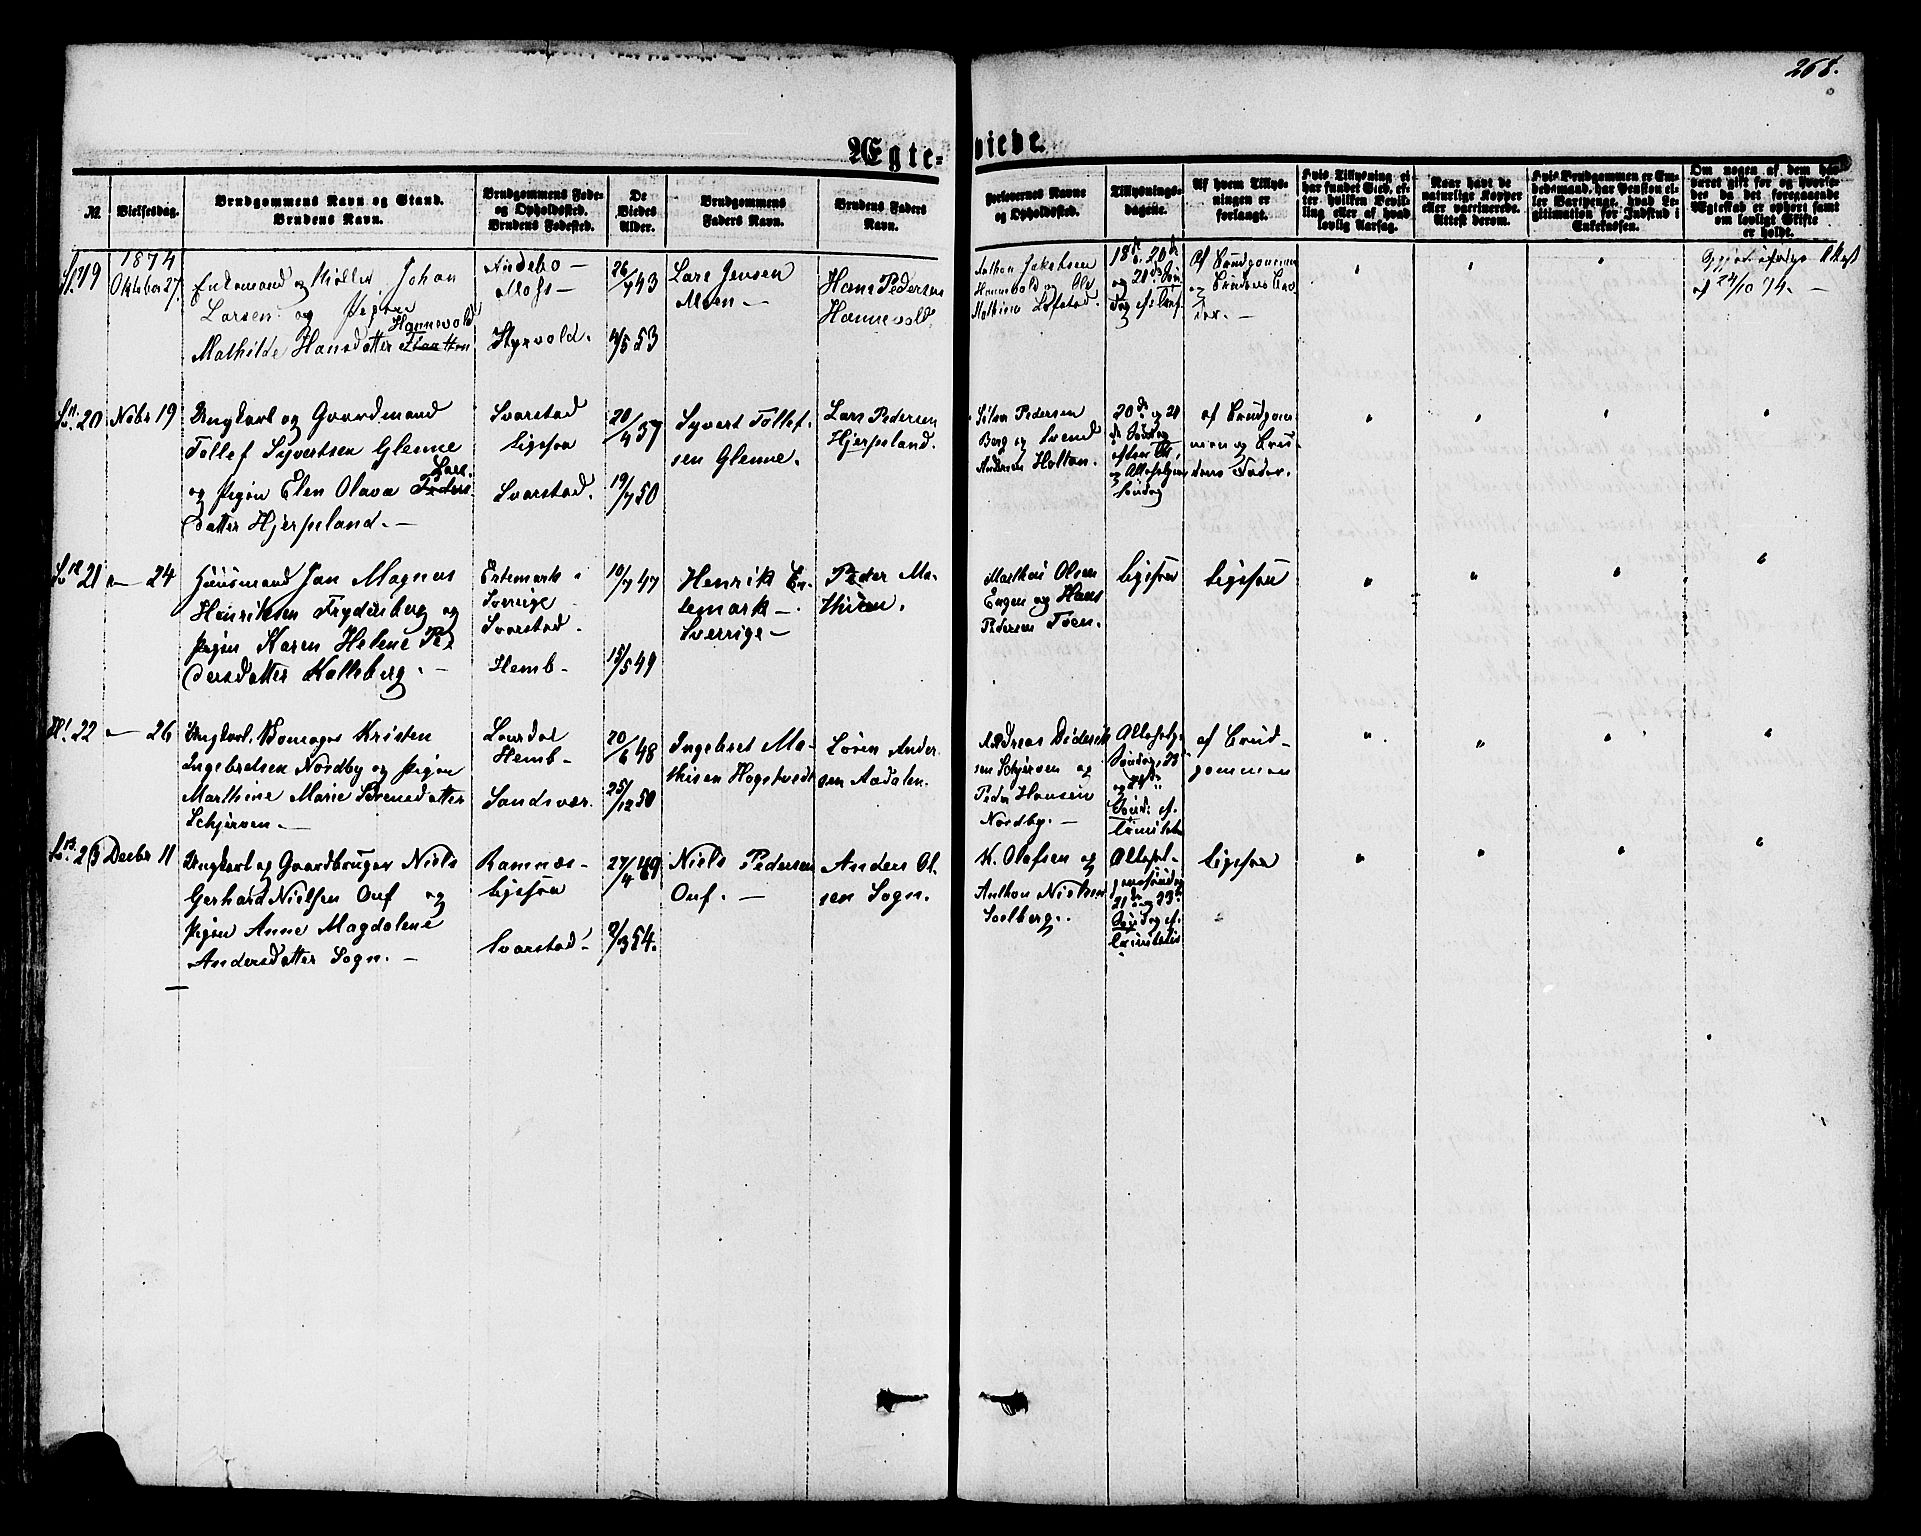 268.
Ægte-viede.
№
Vielsesdag.
Brudgommens Navn og Stand.
Brudens Navn.
Brudgommens Føde-
og Opholdssted.
Brudens Fødested.
De
Viedes
Alder.
Brudgommens
Faders Navn.
Brudens Faders
Navn.
Forlovernes Navne
og Opholdssted.
Tillysnings-
dagene.
Af hvem Tillys-
ningen er
forlangt.
Hvis Tillysning ei
har fundet Sted, ef-
ter hvilken Bevil-
ling eller af hvad
lovlig Aarsag.
Naar havt de
naturlige Kopper
eller vaccinerede.
Attest derom.
Hvis Brudgommen er Em-
bedsmand, har Pension el-
ler Vartpenge, hvad Le-
gitimation for Indskud i
Enkekassen.
Om nogen af dem har
været gift før og hvorle-
des da det foregaaende
Ægteskab er ophørt samt
om lovligt Skifte
er holdt.
1874
19
Oktober 27.
Enkemand og Møller Johan
Larsen og Pigen
Hannevold
Mathilde Hansdatter
Andebo -
Moss -
Styrvold.
26/7 43
4/5 53
Lars Jensen
Moen -
Hans Pedersen
Hannevold.
Anthon Jakobsen
Hannevold og Ole
Mathisen Løfstad.
18de, 20de
og 21de Søn-
dag ef: Tref.
Af Brudgommen
og Brudens Fa-
der. -
af 24/10 74. -
L. 11. 20
Nobr 19
Ungkarl og Gaardmand
Tollef Syvertsen Glenne
Lars
og Pigen Elen Olava Peders
datter Hjerpeland. -
Svarstad
ligesaa
Svarstad.
20/4 37
19/7 50
Syvert Tollef-
sen Glenne.
Lars Pedersen
Hjerpeland.
Pedersen
Berg og Svend
Andersen Holtan.
20de og 21
de Søndag
efter Tr,
og Allehelgens
søndag
af Brudgom-
men og Bru-
dens Fader.
L. 12. 21
" - 24
Huusmand Jan Magnus
Henriksen Frydensberg og
Pigen Karen Helene Pe-
dersdatter Kalleberg. -
Ertemark i
Sverrige
Svarstad.
Hemb -
10/7 47
15/5 49
Henrik Er-
temark -
Sverrige -
Peder Ma-
thisen.
Mathias Olsen
Engen og Hans
Pedersen Toen.
ligesaa
ligesaa
22
" - 26
Ungkarl, Bomager Kristen
Ingebretsen Nordby og Pigen
Marthine Marie Sørensdatter
Schjerven. -
Laurdal
Hemb -
Sandsvær.
20/6 48
25/12 50
Ingebret Ma-
thisen Hogstvedt
Søren Ander-
sen Aadalen.
Andreas Diderik-
sen Schjerven og
Peder Hansen
Nordby. -
Allehelg.
Søndag, 23
og 24de
Sønd: ef.
trinitat.
af Brud-
gommen
L. 13. 23
Decbr 11
Ungkarl og Gaardbruger Niels
Gerhard Nielsen Ouf og
Pigen Anne Magdalene
Andersdatter Sogn. -
Ramnæs-
ligesaa
Svarstad.
27/4 49
2/3 54.
Niels Pedersen
Ouf. -
Anders Ol-
sen Sogn.
K. Olafsen og
Anthon Nielsen
Solberg.
Allehel-
genssøndag
21de og 23de
Søndag ef.
trinitatis
ligesaa